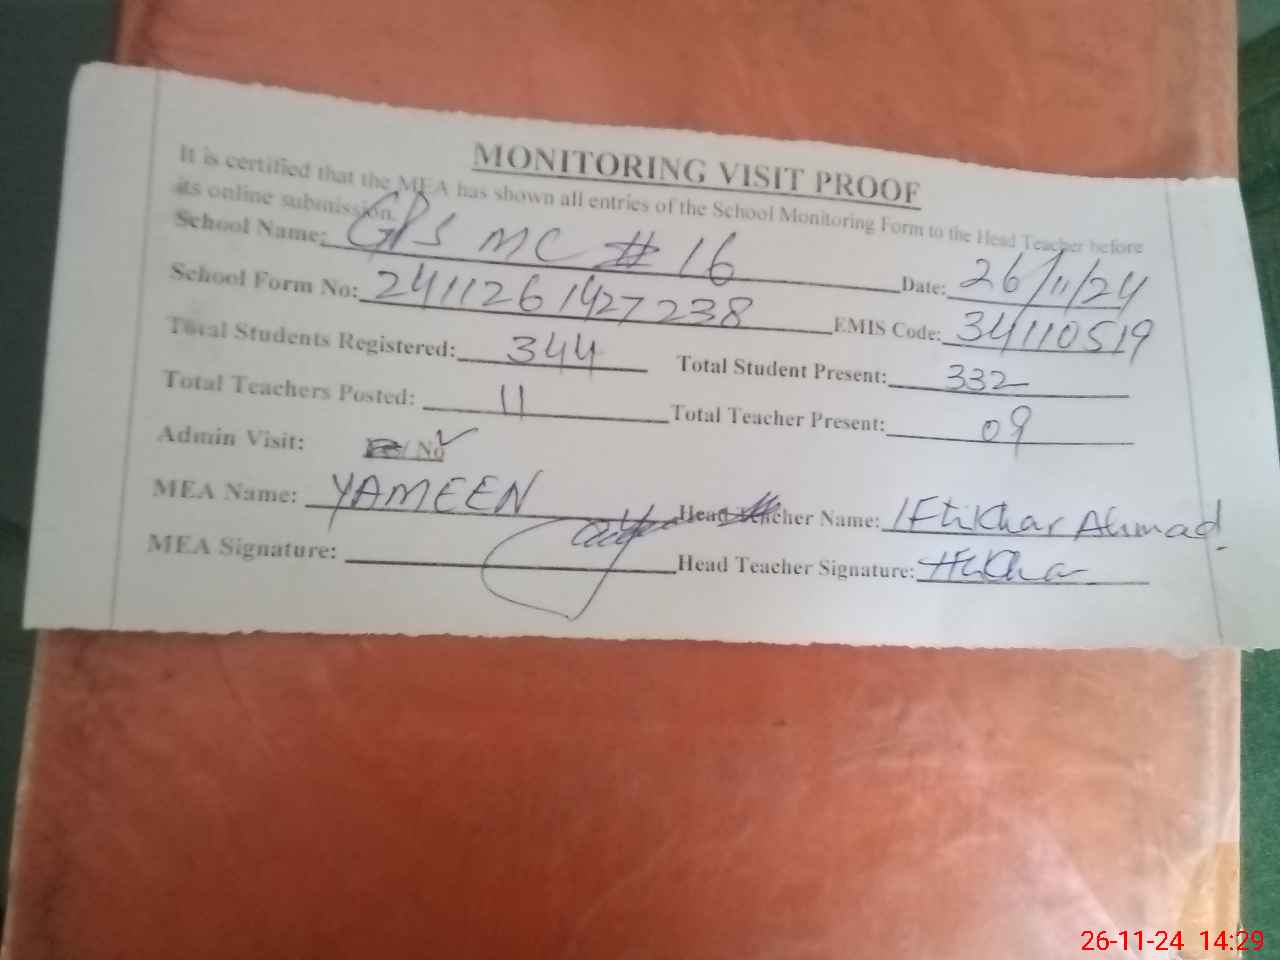 MONITORING VISIT PROOF
It is certified that the MEA has shown all entries of the School Monitoring Form to the Head Teacher before
its online submission.
School Name: GPS MC # 16 Date: 26/11/24
School Form No: 2411261427238 EMIS Code: 34110519
Total Students Registered: 344 Total Student Present: 332
Total Teachers Posted: 11 Total Teacher Present: 09
Admin Visit: / No ✓
MEA Name: YAMEEN Head Teacher Name: Iftikhar Ahmad.
MEA Signature: Head Teacher Signature: Iftikhar
26-11-24 14:29